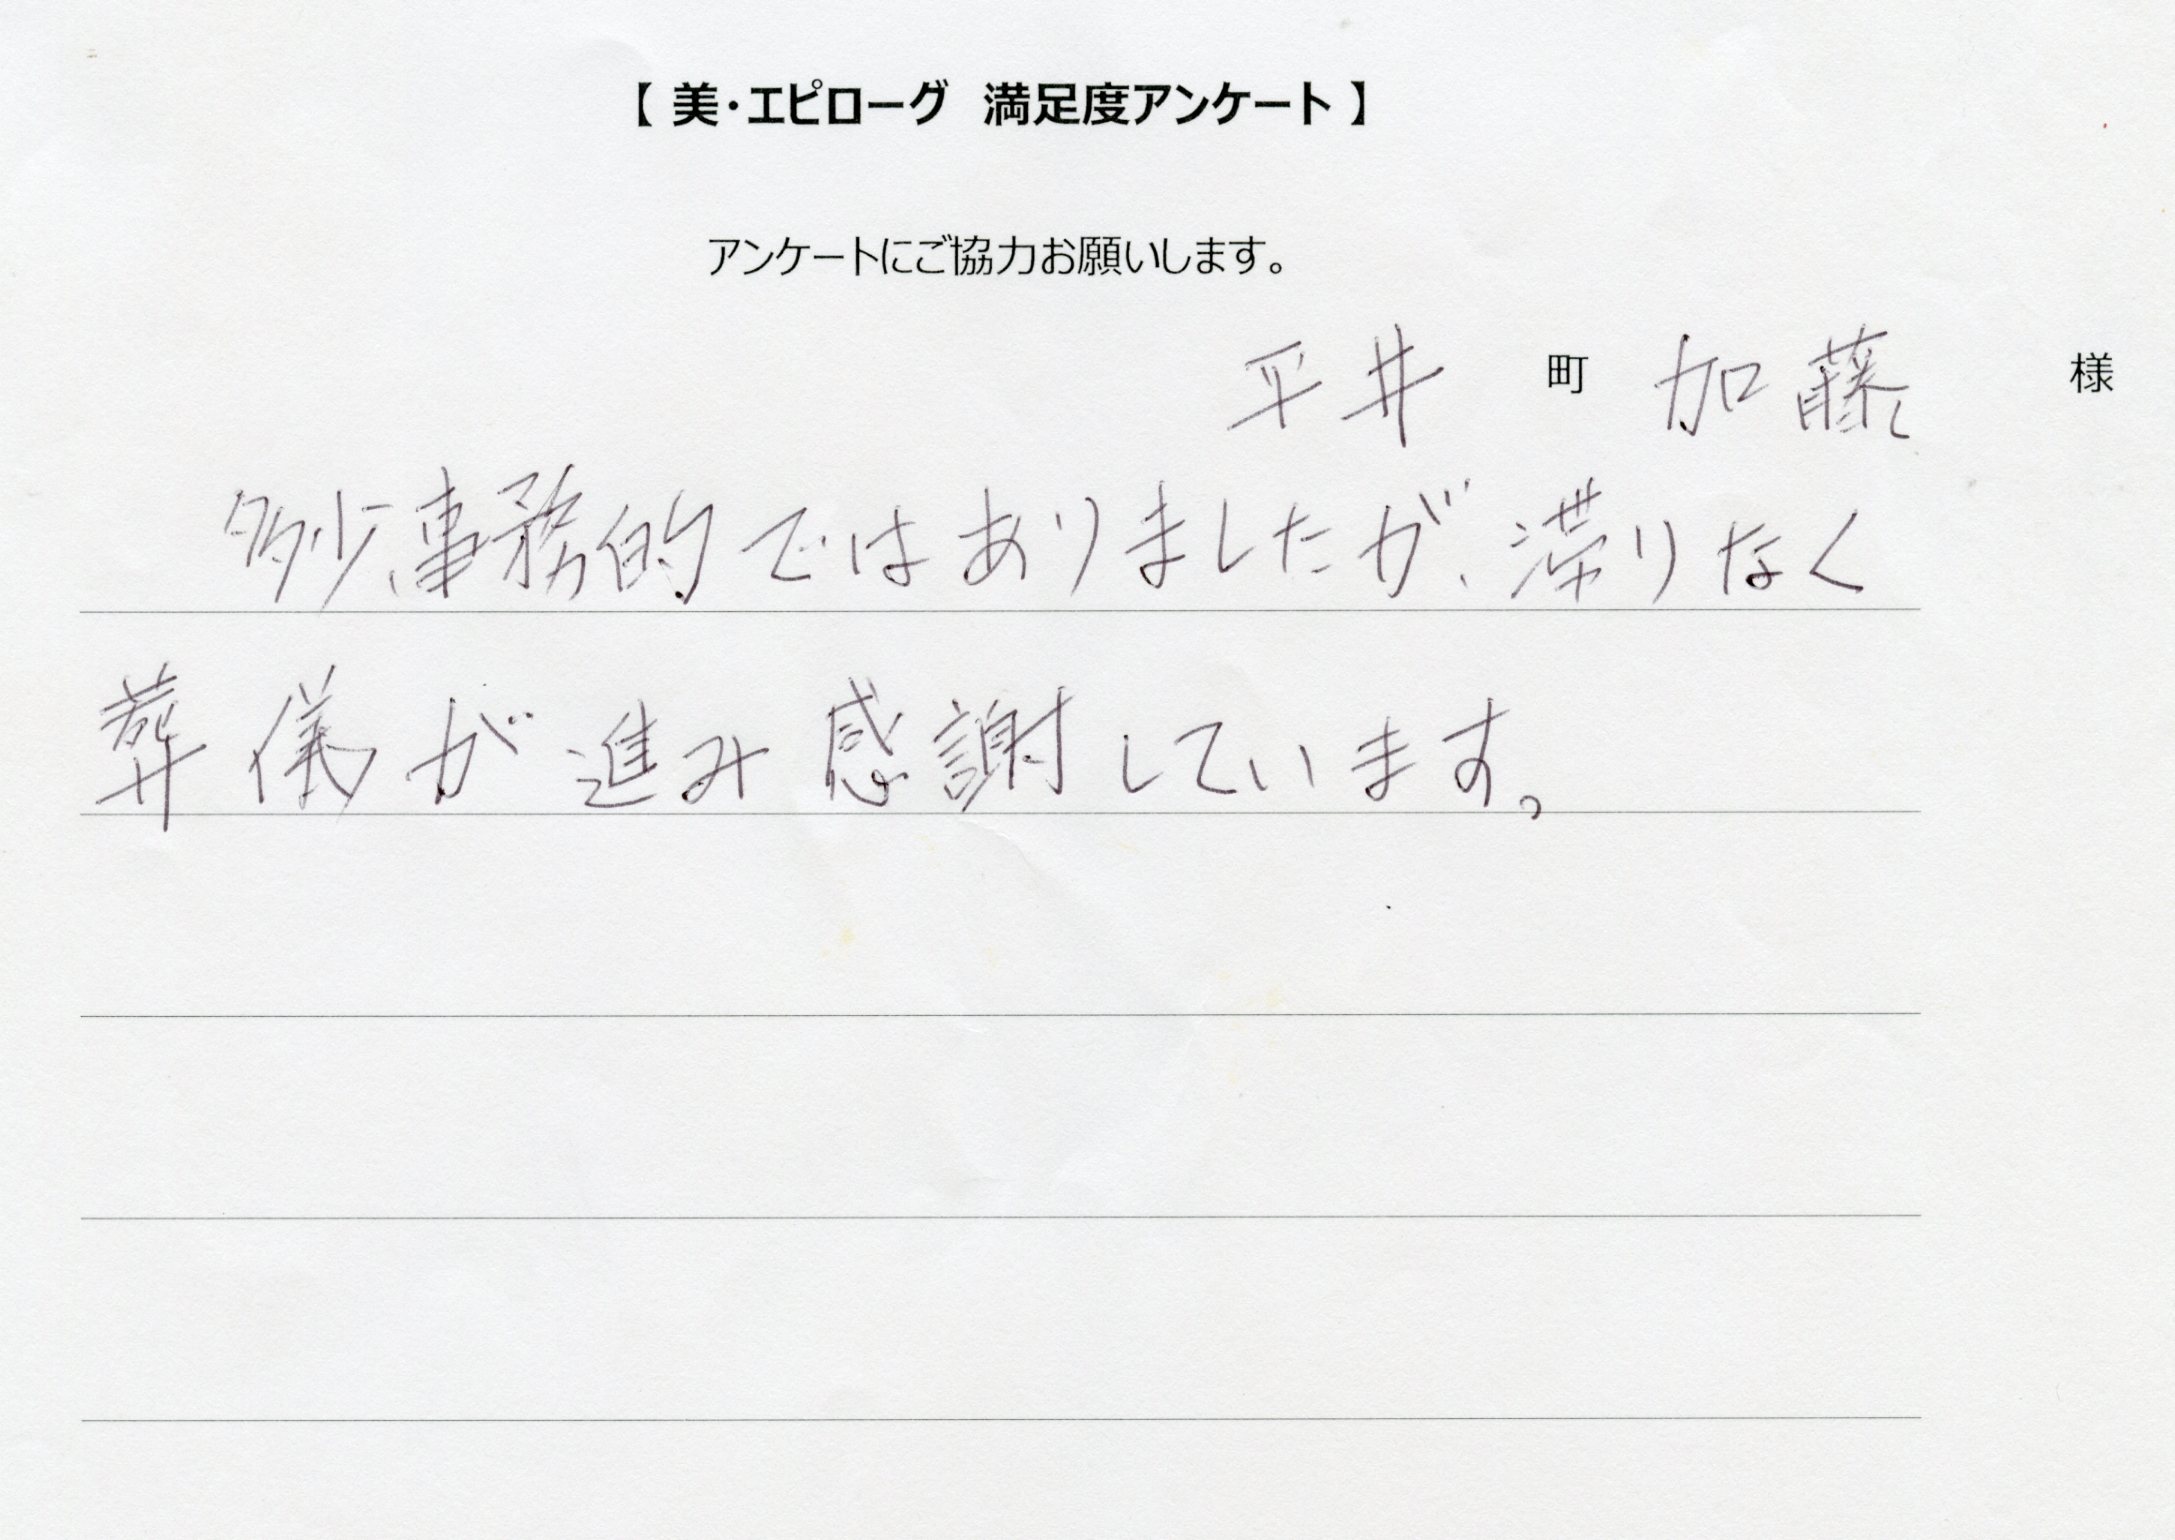 【 美・エピローグ 満足度アンケート 】
アンケートにご協力お願いします。
平井 町 加藤 様
多少事務的ではありましたが、滞りなく
葬儀が進み感謝しています。